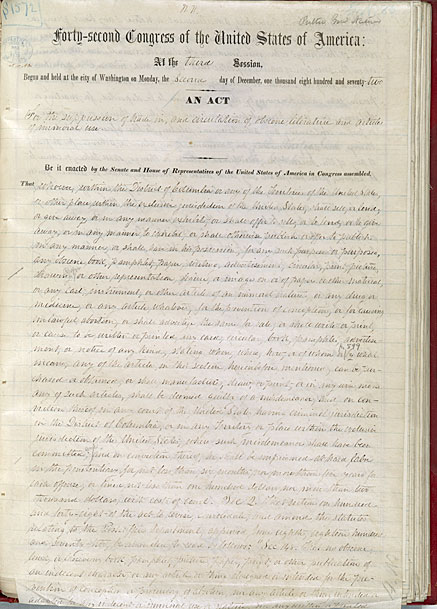 Forty-second Congress of the United States of America:
At the third Session,
Begun and held at the city of Washington on Monday, the second day of December, one thousand eight hundred and seventy-two
AN ACT
For the suppression of trade in, and circulation of obscene literature and articles
of immoral use.
Be it enacted by the Senate and House of Representatives of the United States of America in Congress assembled,
That whoever, within the District of Columbia or any of the Territories of the United States
or other place within the exclusive jurisdiction of the United States, shall sell, or lend,
or give away, or in any manner exhibit, or shall offer to sell, or to lend, or to give
away, or in any manner to exhibit, or shall otherwise publish or offer to publish
in any manner, or shall have in his possession, for any such purpose or purposes,
any obscene book, pamphlet, paper, writing, advertisement, circular, print, picture,
drawing or other representation, figure, or image on or of paper or other material,
or any cast, instrument, or other article of an immoral nature, or any drug or
medicine, or any article whatever, for the prevention of conception, or for causing
unlawful abortion, or shall advertise the same for sale, or shall write or print,
or cause to be written or printed, any card, circular, book, pamphlet, advertise-
ment, or notice of any kind, stating when, where, how, or of whom, or by what
means, any of the articles in this section hereinbefore mentioned, can be pur-
chased or obtained, or shall manufacture, draw, or print, or in any wise make
any of such articles, shall be deemed guilty of a misdemeanor, and, on con-
viction thereof in any court of the United States having criminal jurisdiction
in the District of Columbia, or in any Territory or place within the exclusive
jurisdiction of the United States, where such misdemeanor shall have been
committed; and on conviction thereof, he shall be imprisoned at hard labor
in the penitentiary for not less than six months nor more than five years for
each offense, or fined not less than one hundred dollars nor more than two
thousand dollars, with costs of court. Sec. 2. That section one hundred
and forty-eight of the act to revise, consolidate, and amend the statutes
relating to the Post-Office Department, approved June eighth, eighteen hundred
and seventy-two, be amended to read as follows: "Sec. 148. That no obscene,
lewd, or lascivious book, pamphlet, picture, paper, print, or other publication of
an indecent character, or any article or thing designed or intended for the pre-
vention of conception or procuring of abortion, nor any article or thing intended or